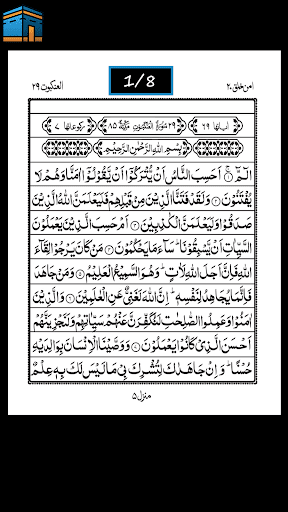 امن خلق ٢٠
1/8
العنکبوت ٢٩
اٰیاتها ٦٩ ٢٩ سُوْرَةُ الْعَنْكَبُوْتِ مَكِّيَّةٌ ٨٥ رکوعاتها ٧
بِسْمِ اللّٰهِ الرَّحْمٰنِ الرَّحِيْمِ
الٓمّٓ ۝١ اَحَسِبَ النَّاسُ اَنْ يُّتْرَكُوْۤا اَنْ يَّقُوْلُوْۤا اٰمَنَّا وَهُمْ لَا
يُفْتَنُوْنَ ۝٢ وَلَقَدْ فَتَنَّا الَّذِيْنَ مِنْ قَبْلِهِمْ فَلَيَعْلَمَنَّ اللّٰهُ الَّذِيْنَ
صَدَقُوْا وَلَيَعْلَمَنَّ الْكٰذِبِيْنَ ۝٣ اَمْ حَسِبَ الَّذِيْنَ يَعْمَلُوْنَ
السَّيِّاٰتِ اَنْ يَّسْبِقُوْنَا ؕ سَآءَ مَا يَحْكُمُوْنَ ۝٤ مَنْ كَانَ يَرْجُوْا لِقَآءَ
اللّٰهِ فَاِنَّ اَجَلَ اللّٰهِ لَاٰتٍ ؕ وَهُوَ السَّمِيْعُ الْعَلِيْمُ ۝٥ وَمَنْ جَاهَدَ
فَاِنَّمَا يُجَاهِدُ لِنَفْسِهٖ ؕ اِنَّ اللّٰهَ لَغَنِيٌّ عَنِ الْعٰلَمِيْنَ ۝٦ وَالَّذِيْنَ
اٰمَنُوْا وَعَمِلُوا الصّٰلِحٰتِ لَنُكَفِّرَنَّ عَنْهُمْ سَيِّاٰتِهِمْ وَلَنَجْزِيَنَّهُمْ
اَحْسَنَ الَّذِيْ كَانُوْا يَعْمَلُوْنَ ۝٧ وَوَصَّيْنَا الْاِنْسَانَ بِوَالِدَيْهِ
حُسْنًا ؕ وَاِنْ جَاهَدٰكَ لِتُشْرِكَ بِيْ مَا لَيْسَ لَكَ بِهٖ عِلْمٌ
منزل ٥